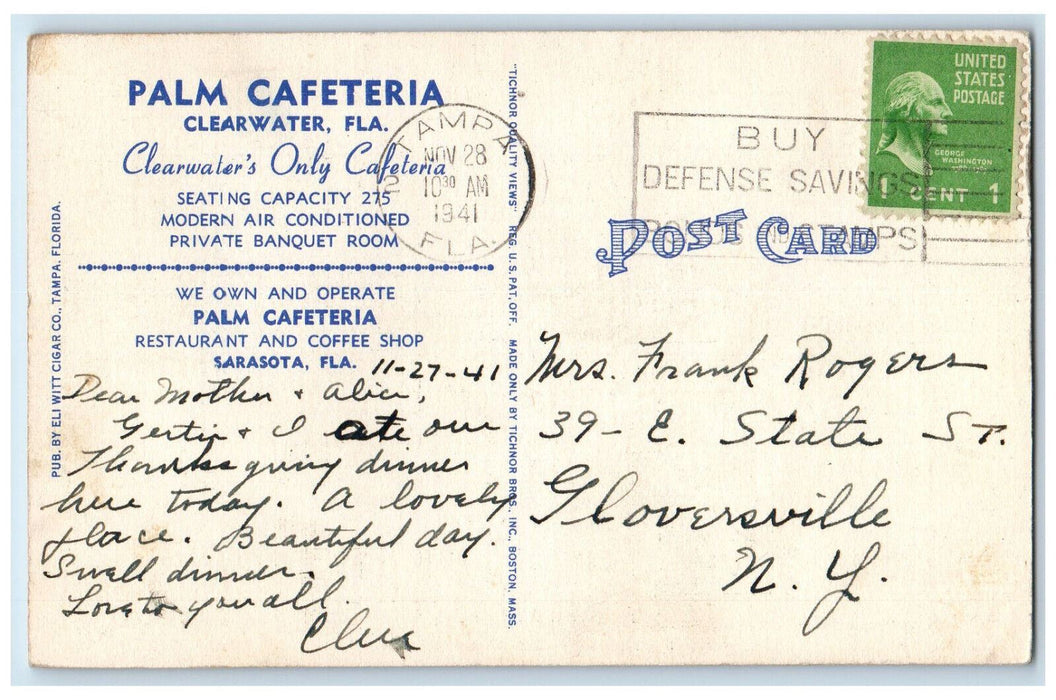 PALM CAFETERIA
CLEARWATER, FLA.
Clearwater's Only Cafeteria
SEATING CAPACITY 275
MODERN AIR CONDITIONED
PRIVATE BANQUET ROOM
WE OWN AND OPERATE
PALM CAFETERIA
RESTAURANT AND COFFEE SHOP
SARASOTA, FLA.
11-27-41
Dear Mother + Alice,
Gertie + I ate our
Thanksgiving dinner
here today. A lovely
place. Beautiful day.
Swell dinner.
Love to you all.
PUB. BY ELI WITT CIGAR CO., TAMPA, FLORIDA.
"TICHNOR QUALITY VIEWS" REG. U. S. PAT. OFF. MADE ONLY BY TICHNOR BROS., INC., BOSTON, MASS.
TAMPA
NOV 28
10 30 AM
1941
FLA.
BUY
DEFENSE SAVINGS
BONDS AND STAMPS
UNITED
STATES
POSTAGE
GEORGE
WASHINGTON
1 CENT 1
POST CARD
Mrs. Frank Rogers
39- E. State St.
Gloversville
N. Y.